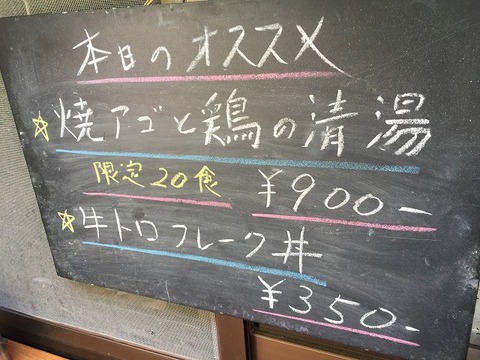 本日のオススメ
☆焼アゴと鶏の清湯
限定20食 ¥900-
☆牛トロフレーク丼
¥350-